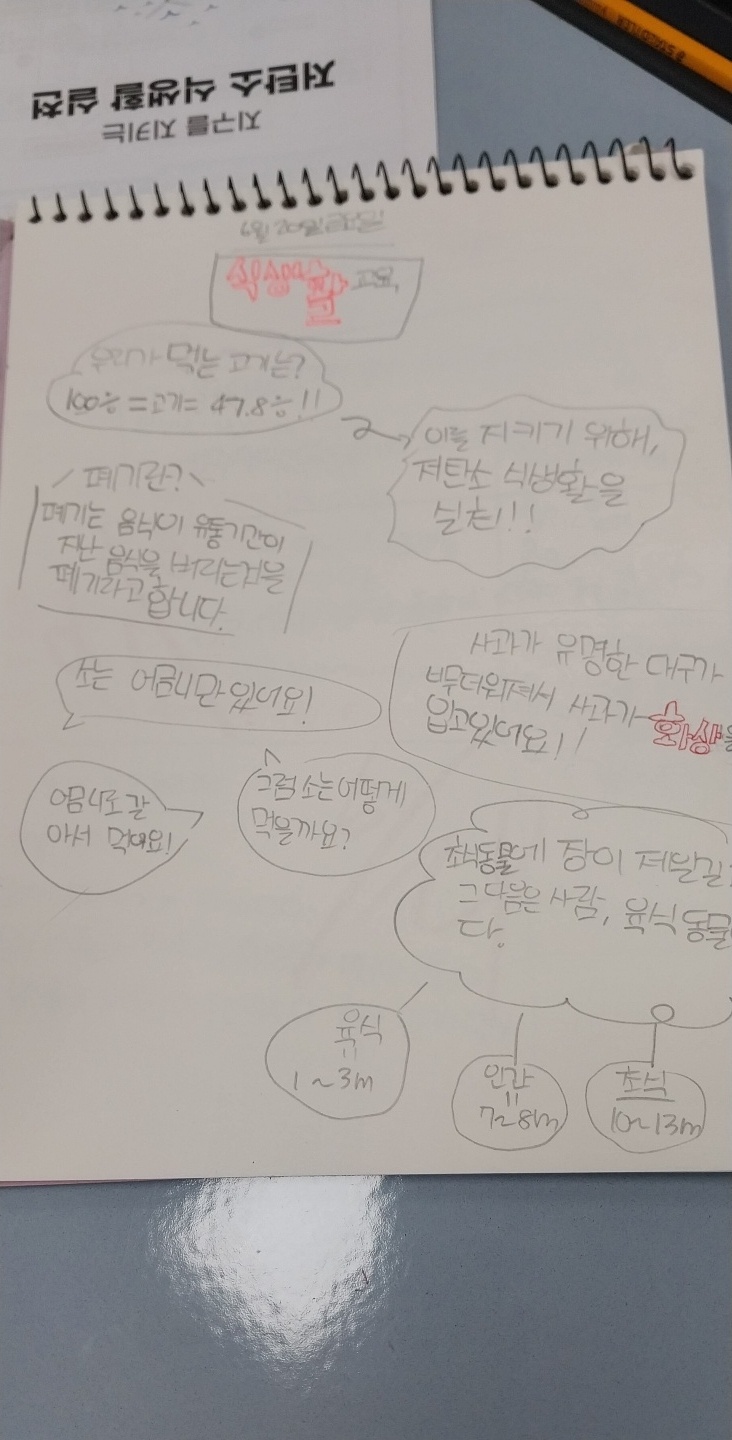 지구를 지키는
저탄소 식생활 실천
STAEDTLER
6월 20일 금요일
식생활 교육,
우리가 먹는 고기는?
100% = 고기 = 47.8%!!
이를 지키기 위해,
저탄소 식생활을
실천!!
폐기란?
폐기는 음식이 유통기간이
지난 음식을 버리는것을
폐기라고 합니다.
소는 어금니만 있어요!
그럼 소는 어떻게
먹을까요?
어금니로 갈
아서 먹어요!
사과가 유명한 대구가
무더워져서 사과가 화상을
입고있어요!!
초식동물에 장이 제일길
그 다음은 사람, 육식동물
다.
육식
=
1~3m
인간
=
7~8m
초식
10~13m